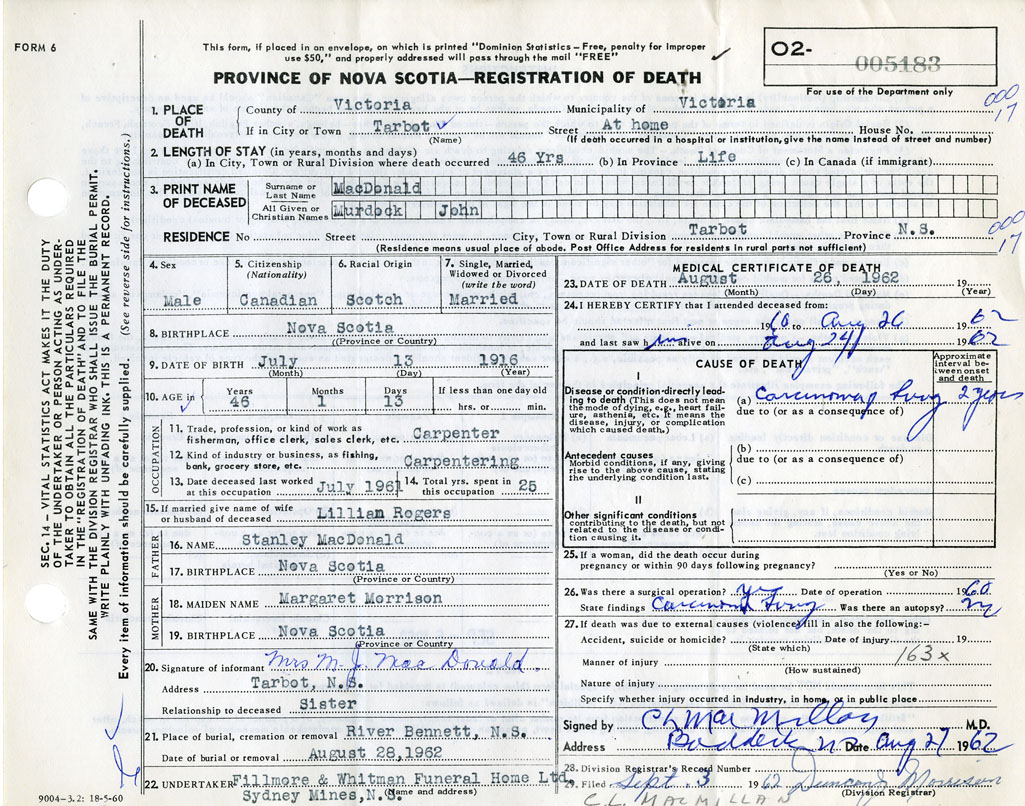 FORM 6
This form, if placed in an envelope, on which is printed "Dominion Statistics – Free, penalty for improper
use $50," and properly addressed will pass through the mail "FREE"
O2-
005183
For use of the Department only
PROVINCE OF NOVA SCOTIA—REGISTRATION OF DEATH
000
17
1. PLACE OF DEATH
County of Victoria Municipality of Victoria
If in City or Town Tarbot Street At home House No.
(Name) (If death occurred in a hospital or institution, give the name instead of street and number)
2. LENGTH OF STAY (in years, months and days)
(a) In City, Town or Rural Division where death occurred 46 Yrs (b) In Province Life (c) In Canada (if immigrant)
3. PRINT NAME OF DECEASED
Surname or Last Name MacDonald
All Given or Christian Names Murdock John
000
17
RESIDENCE No Street City, Town or Rural Division Tarbot Province N.S.
(Residence means usual place of abode. Post Office Address for residents in rural parts not sufficient)
4. Sex Male
5. Citizenship (Nationality) Canadian
6. Racial Origin Scotch
7. Single, Married, Widowed or Divorced (write the word) Married
8. BIRTHPLACE Nova Scotia
(Province or Country)
9. DATE OF BIRTH July 13 1916
(Month) (Day) (Year)
10. AGE in Years 46 Months 1 Days 13 If less than one day old hrs. or min.
OCCUPATION
11. Trade, profession, or kind of work as
fisherman, office clerk, sales clerk, etc. Carpenter
12. Kind of industry or business, as fishing,
bank, grocery store, etc. Carpentering
13. Date deceased last worked at this occupation July 1961
14. Total yrs. spent in this occupation 25
15. If married give name of wife
or husband of deceased Lillian Rogers
FATHER
16. NAME Stanley MacDonald
17. BIRTHPLACE Nova Scotia
(Province or Country)
MOTHER
18. MAIDEN NAME Margaret Morrison
19. BIRTHPLACE Nova Scotia
(Province or Country
20. Signature of informant Mrs M. J. MacDonald.
Address Tarbot, N.S.
Relationship to deceased Sister
21. Place of burial, cremation or removal River Bennett, N.S.
Date of burial or removal August 28, 1962
22. UNDERTAKER Fillmore & Whitman Funeral Home Ltd.
Sydney Mines, N.S. (Name and address)
MEDICAL CERTIFICATE OF DEATH
23. DATE OF DEATH August 26, 1962
(Month) (Day) (Year)
24. I HEREBY CERTIFY that I attended deceased from:
1960 to Aug 26 1962
and last saw him alive on Aug 24 1962
CAUSE OF DEATH
Approximate interval between onset and death
I
Disease or condition directly leading to death (This does not mean the mode of dying, e.g., heart failure, asthenia, etc. It means the disease, injury, or complication which caused death.)
(a) Carcinoma Lung 2 years
due to (or as a consequence of)
Antecedent causes
Morbid conditions, if any, giving rise to the above cause, stating the underlying condition last.
(b)
due to (or as a consequence of)
(c)
II
Other significant conditions
contributing to the death, but not related to the disease or condition causing it.
25. If a woman, did the death occur during
pregnancy or within 90 days following pregnancy?
(Yes or No)
26. Was there a surgical operation? Yes Date of operation 1960
State findings Carcinoma Lung Was there an autopsy? No
27. If death was due to external causes (violence) fill in also the following:-
Accident, suicide or homicide? Date of injury 19
(State which)
163x
Manner of injury
(How sustained)
Nature of injury
Specify whether injury occurred in industry, in home, or in public place
Signed by C L MacMillan M.D.
Address Baddeck NS Date Aug 27 1962
28. Division Registrar's Record Number
29. Filed Sept. 3 1962 Duncan Morrison
(Division Registrar)
C. L. MACMILLAN
SEC. 14 – VITAL STATISTICS ACT MAKES IT THE DUTY
OF THE UNDERTAKER OR PERSON ACTING AS UNDER-
TAKER TO OBTAIN ALL THE PARTICULARS REQUIRED
IN THE "REGISTRATION OF DEATH" AND TO FILE THE
SAME WITH THE DIVISION REGISTRAR WHO SHALL ISSUE THE BURIAL PERMIT.
WRITE PLAINLY WITH UNFADING INK. THIS IS A PERMANENT RECORD.
Every item of information should be carefully supplied. (See reverse side for instructions.)
9004-3.2: 18-5-60